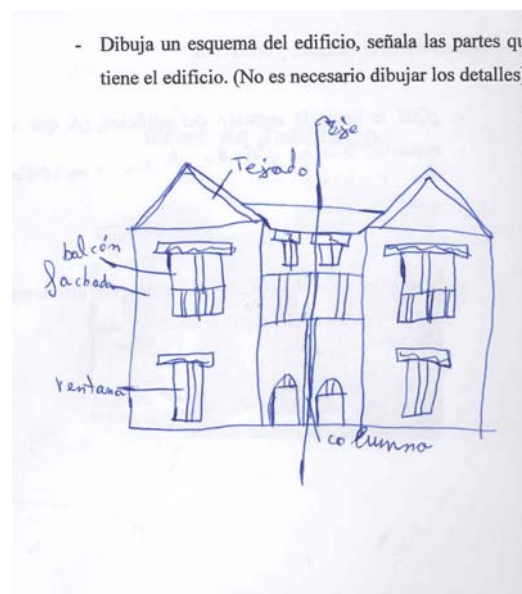 - Dibuja un esquema del edificio, señala las partes qu
tiene el edificio. (No es necesario dibujar los detalles)
Eje
Tejado
balcón
fachada
ventana
columna